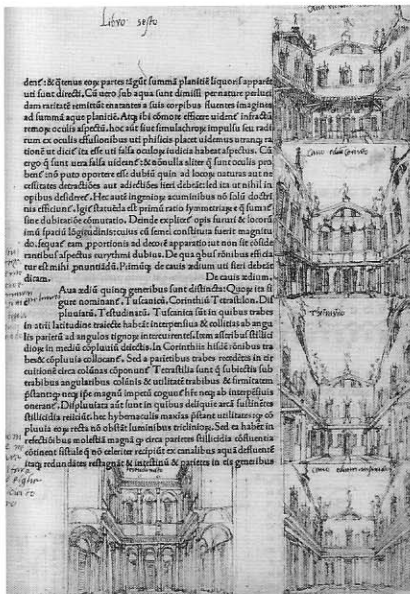 Libro sesto
dent: & q̃tenus eoꝝ partes tãgũt summã planitiẽ liquoris apparẽt
uti sunt directi. Cũ uero sub aqua sunt dimissi per nature perluci
dam raritatẽ remittũt enatantes a suis corpibus fluentes imagines
ad summã aque planitiẽ. Atqꝫ ibi cõmote efficere uident infractũ
remoꝝ oculis aspectũ. hoc aut siue simulachroꝝ impulsu seu radi
rum ex oculis effusionibus uti phisicis placet uidemus utranqꝫ ra
tionẽ ut dicit ita esse uti falsa oculoꝝ iudicia habeat aspectus. Cũ
ergo q̃ sunt uera falsa uideant: & nõnulla aliter q̃ sunt oculis pro
bent nõ puto oportere esse dubiũ quin ad locoꝝ naturas aut ne
cessitates detractiões aut adiectiões fieri debeãt: sed ita ut nihil in
opibus desideret. Hec autẽ ingenioꝝ acuminibus nõ solũ doctri
nis efficiunt. Igit statuẽda est primũ ratio symmetriaꝝ e q̃ sumat
sine dubitatiõe cõmutatio. Deinde explicet opis futuri & locorũ
imũ spaciũ lõgitudinis: cuius cũ semel constituta fuerit magnitu
do. sequat eam pportionis ad decorẽ apparatio: ut non sit cõside
rantibus aspectus eurythmi dubius. De qua qbus rõnibus efficia
tur est mihi pnuntiãdũ. Primũqꝫ de cauis ædium uti fieri debeãt
dicam. De cauis ædium.
Aua ædiũ quinqꝫ generibus sunt distincta: Quoꝝ ita fi
gure nominant. Tuscanicũ. Corinthiũ Tetrastilon. Dis
pluuiatũ. Testudinatũ. Tuscanica sũt in quibus trabes
in atrii latitudine traiecte habeãt interpẽsiua & collitias ab angu
lis parietũ ad angulos tignoꝝ intercurrentes. Item asseribus stillici
dioꝝ in mediũ cõpluuiũ deiectis. In Corinthiis hisdẽ rõnibus tra
bes & cõpluuia collocant. Sed a parietibus trabes recedẽtes in cir
cuitione circa colũnas cõponunt Tetrastilia sunt q̃ subiectis sub
trabibus angularibus colũnis & utilitatẽ trabibus & firmitatem
pstant: qꝫ neqꝫ ipe magnũ impetũ cogunt hr̃e neqꝫ ab interpẽsiuis
onerant. Displuuiata aũt sunt in quibus deliquie arcã sustinẽtes
stillicidia reiiciũt. hec hybernaculis maxias pstant utilitates: qꝫ cõ
pluuia eoꝝ recta nõ obstãt luminibus triclinioꝝ. Sed ea habẽt in
refectiõibus molestiã magnã qꝫ circa parietes stillicidia cõfluentia
cõtinent fistule q̃ nõ celeriter recipiũt ex canalibus aquã defluentẽ
itaqꝫ redundãtes restagnãt & intestinũ & parietes in eis generibus